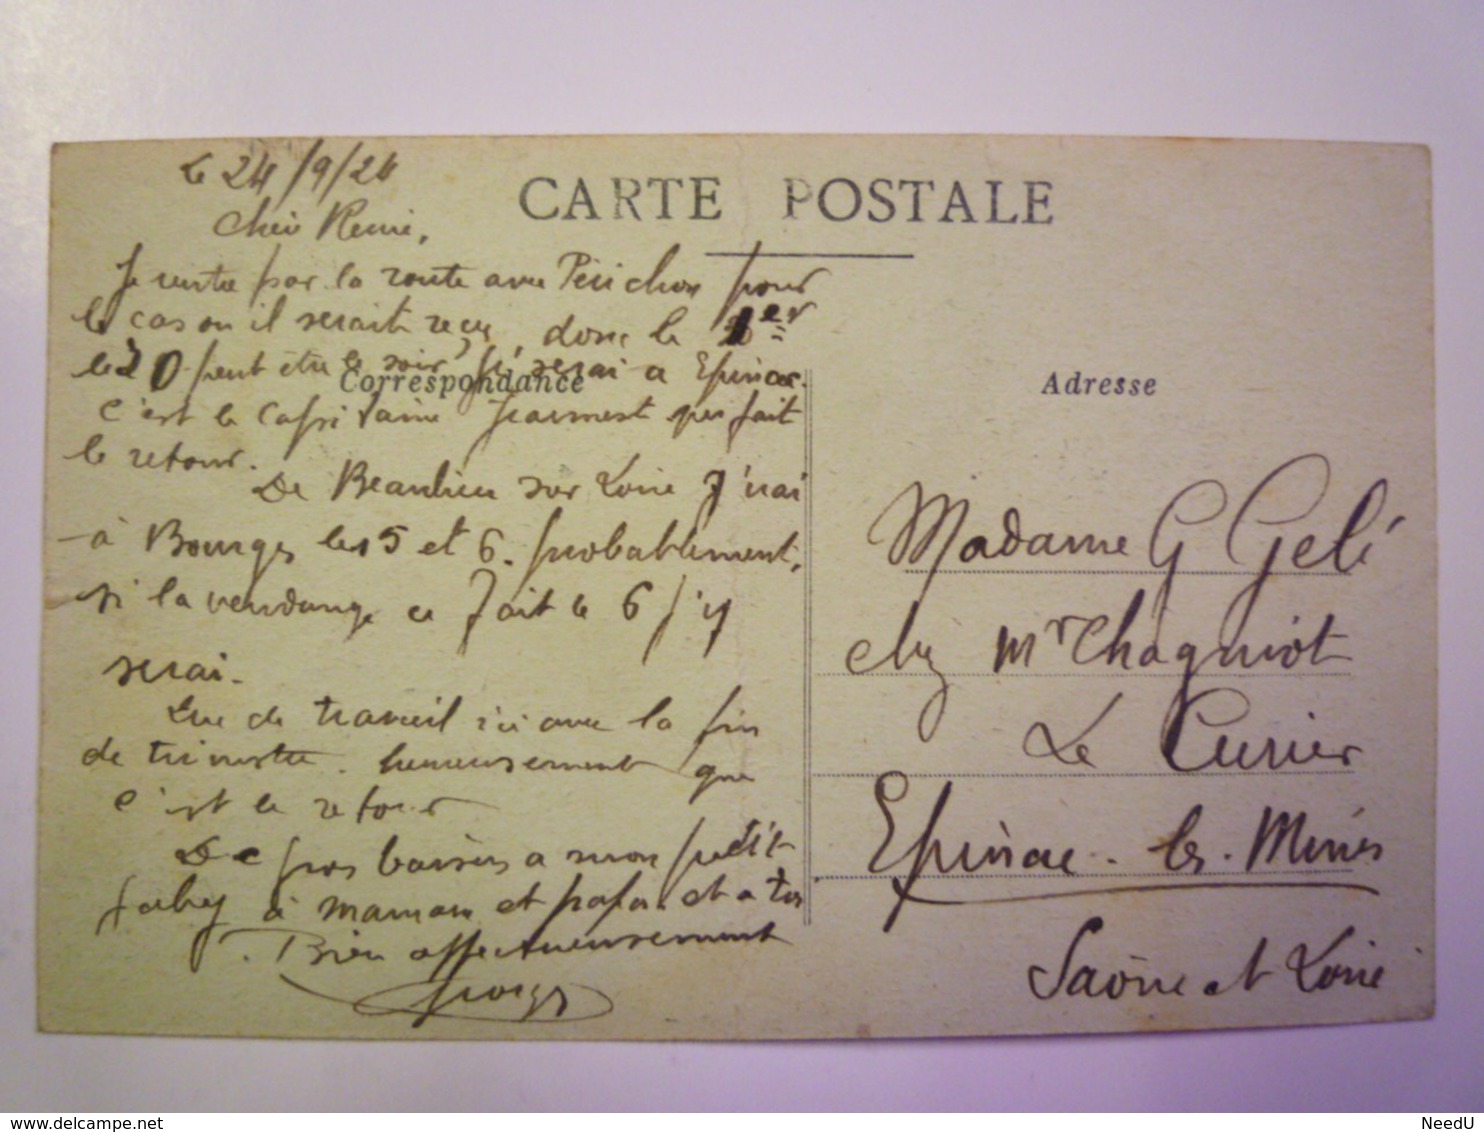 le 24/9/24
CARTE POSTALE
Cher
Je rentre par la route avec Périchon pour
le cas où il serait reçu, donc le 1er
le 30 peut être le soir je serai a Epinac.
c'est le Capitaine qui fait
le retour.
De Beaulieu sur Loire j'irai
à Bourges les 5 et 6 probablement,
si la vendange ce fait le 6 j'y
serai.
Correspondance
de travail ici avec la fin
de trimestre. heureusement que
c'est le retour
De gros baisers a mon petit
à maman et papa et a toi
Bien affectueusement
Georges
Adresse
Madame G Gelé
chez Mr Chagniot
Le Curier
Epinac-les-Mines
Saône et Loire
NeedU